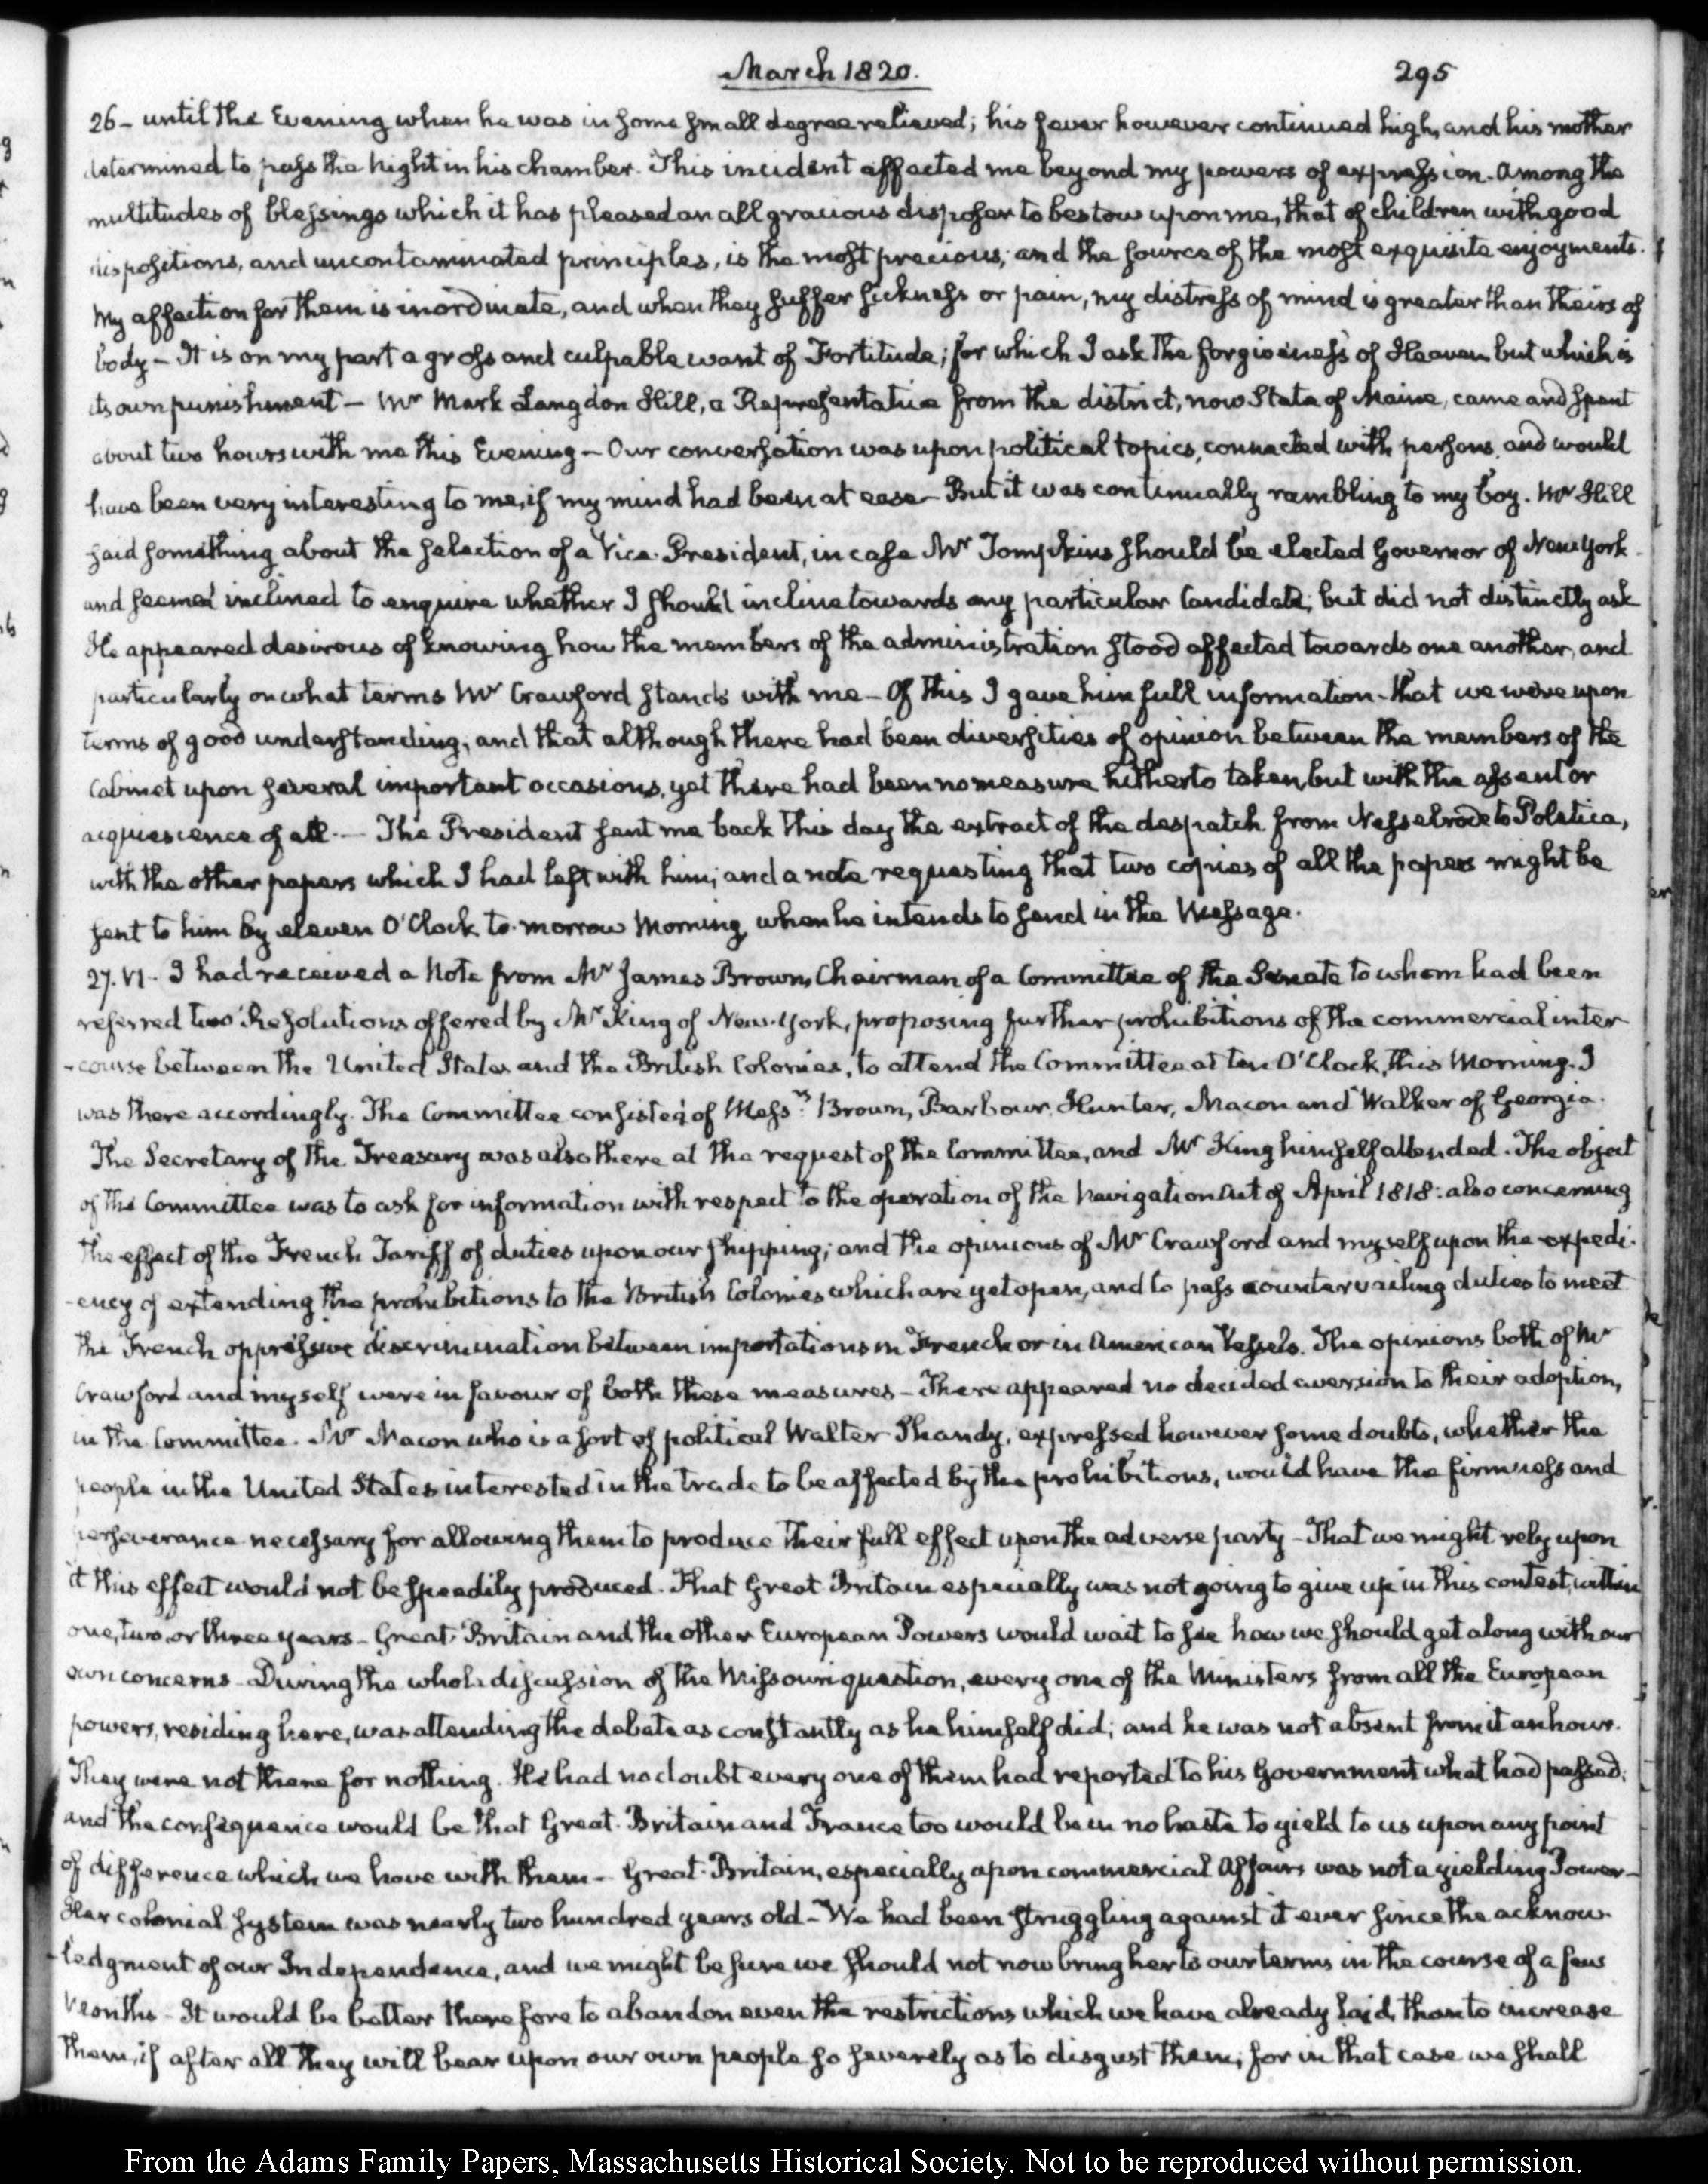 March 1820.
295
26 - until the Evening when he was in some small degree relieved; his fever however continued high, and his mother
determined to pass the night in his chamber. This incident affected me beyond my powers of expression. Among the
multitudes of blessings which it has pleased an all gracious disposer to bestow upon me, that of children with good
dispositions, and uncontaminated principles, is the most precious; and the source of the most exquisite enjoyments.
My affection for them is inordinate, and when they suffer sickness or pain, my distress of mind is greater than theirs of
body - It is on my part a gross and culpable want of Fortitude; for which I ask the forgiveness of Heaven but which is
its own punishment - Mr Mark Langdon Hill, a Representative from the district, now State of Maine, came and spent
about two hours with me this Evening - Our conversation was upon political topics, connected with persons, and would
have been very interesting to me, if my mind had been at ease - But it was continually rambling to my boy. Mr Hill
said something about the selection of a Vice-President, in case Mr Tompkins should be elected Governor of New York
and seemed inclined to enquire whether I should incline towards any particular Candidate; but did not distinctly ask
He appeared desirous of knowing how the members of the administration stood affected towards one another, and
particularly on what terms Mr Crawford stands with me - Of this I gave him full information - that we were upon
terms of good understanding; and that although there had been diversities of opinion between the members of the
Cabinet upon several important occasions, yet there had been no measure hitherto taken, but with the assent or
acquiescence of all. - The President sent me back this day the extract of the despatch from Nesselrode to Poletica,
with the other papers which I had left with him; and a note requesting that two copies of all the papers might be
sent to him by eleven O'Clock to-morrow Morning, when he intends to send in the Message.
27. VI. I had received a Note from Mr James Brown, Chairman of a Committee of the Senate to whom had been
referred two Resolutions offered by Mr King of New-York, proposing further prohibitions of the commercial inter
-course between the United States and the British Colonies, to attend the Committee at ten O'Clock, this Morning. I
was there accordingly. The Committee consisted of Messrs Brown, Barbour, Hunter, Macon and Walker of Georgia.
The Secretary of the Treasury was also there at the request of the Committee, and Mr King himself attended. The object
of the Committee was to ask for information with respect to the operation of the Navigation Act of April 1818: also concerning
the effect of the French Tariff of duties upon our shipping; and the opinions of Mr Crawford and myself upon the expedi-
-ency of extending the prohibitions to the British Colonies which are yet open, and to pass countervailing duties to meet
the French oppressive discrimination between importations in French or in American Vessels. The opinions both of Mr
Crawford and myself were in favour of both these measures - There appeared no decided aversion to their adoption,
in the Committee. Mr Macon who is a sort of political Walter Shandy, expressed however some doubts, whether the
people in the United States interested in the trade to be affected by the prohibitions, would have the firmness and
perseverance necessary for allowing them to produce their full effect upon the adverse party - That we might rely upon
it this effect would not be speedily produced. That Great Britain especially was not going to give up in this contest, within
one, two, or three years - Great-Britain and the other European Powers would wait to see how we should get along with our
own concerns - During the whole discussion of the Missouri question, every one of the Ministers from all the European
powers, residing here, was attending the debate as constantly as he himself did; and he was not absent from it an hour.
They were not there for nothing. He had no doubt every one of them had reported to his Government what had passed;
and the consequence would be that Great-Britain and France too would be in no haste to yield to us upon any point
of difference which we have with them - Great-Britain, especially upon commercial Affairs was not a yielding Power -
Her colonial system was nearly two hundred years old - We had been struggling against it ever since the acknow-
-ledgment of our Independence, and we might be sure we should not now bring her to our terms in the course of a few
Months - It would be better therefore to abandon even the restrictions which we have already laid, than to increase
them, if after all they will bear upon our own people so severely as to disgust them; for in that case we shall
From the Adams Family Papers, Massachusetts Historical Society. Not to be reproduced without permission.